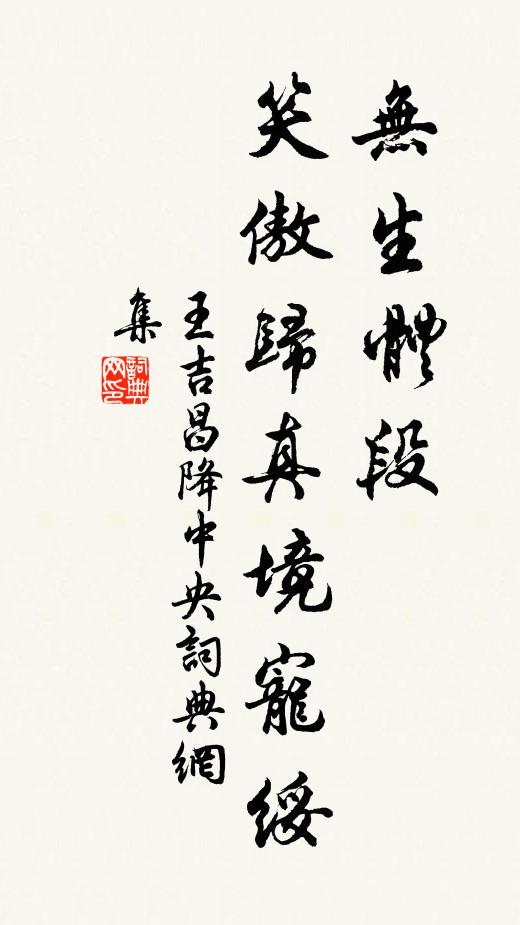 無生體段
笑傲歸真境寵綏
王吉昌降中央詞典網
集
詞典
网印